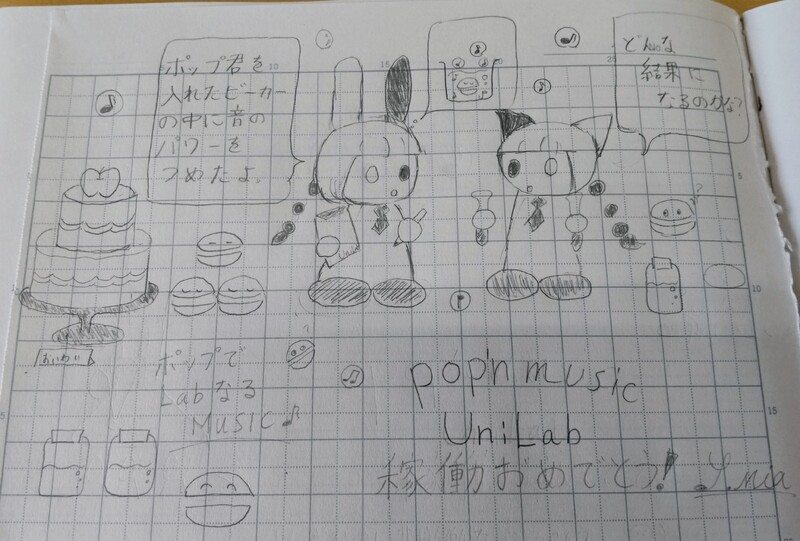 ポップ君を
入れたビーカー
の中に音の
パワーを
つめたよ。
どんな
結果に
なるのかな?
10
15
5
10
15
ポップで
Labなる
MUSIC♪
pop'n music
UniLab
稼働おめでとう!
Y.mia